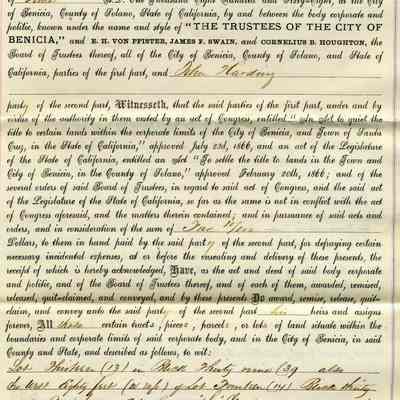 of A.D. One Thousand Eight Hundred and Sixty-Eight, at the City
of Benicia, County of Solano, State of California, by and between the body corporate and
politic, known under the name and style of "THE TRUSTEES OF THE CITY OF
BENICIA," and E. H. VON PFISTER, JAMES F. SWAIN, and CORNELIUS D. HOUGHTON, the
Board of Trustees thereof, all of the City of Benicia, County of Solano, and State of
California, parties of the first part, and John Harding
party of the second part, Witnesseth, that the said parties of the first part, under and by
virtue of the authority in them vested by an act of Congress, entitled "An Act to quiet the
title to certain lands within the corporate limits of the City of Benicia, and Town of Santa
Cruz, in the State of California," approved July 23d, 1866, and an act of the Legislature
of the State of California, entitled an Act "To settle the title to lands in the Town and
City of Benicia, in the County of Solano," approved February 20th, 1866; and of the
several orders of said Board of Trustees, in regard to said act of Congress, and the said act
of the Legislature of the State of California, so far as the same is not in conflict with the act
of Congress aforesaid, and the matters therein contained; and in pursuance of said acts and
orders, and in consideration of the sum of
Dollars, to them in hand paid by the said party of the second part, for defraying certain
necessary incidental expenses, at or before the ensealing and delivery of these presents, the
receipt of which is hereby acknowledged, Have, as the act and deed of said body corporate
and politic, and of the Board of Trustees thereof, each of them, awarded, remised,
released, quit-claimed, and conveyed, and by these presents Do award, remise, release, quit-
claim, and convey unto the said party of the second part his heirs and assigns
forever, All those certain tracts, pieces, parcels, or lots of land situate within the
boundaries and corporate limits of said corporate body, and in the City of Benicia, in said
County and State, and described as follows, to wit:
Lot Thirteen (13) in Block Thirty nine (39 also
the West Eighty feet of Lot Fourteen (14) Block thirty